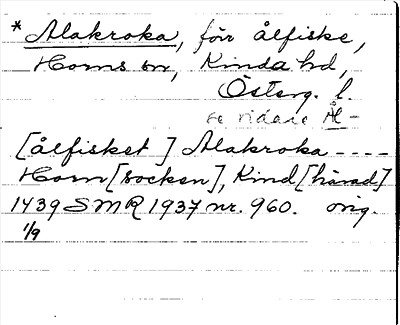 * Alakroka, för ålfiske,
Horns sn, Kinda hd,
Österg. l.
se vidare Ål-
[ålfisket] Alakroka ----
Horn [socken], Kind [härad]
1439 SMR 1937 nr. 960. orig.
1/9